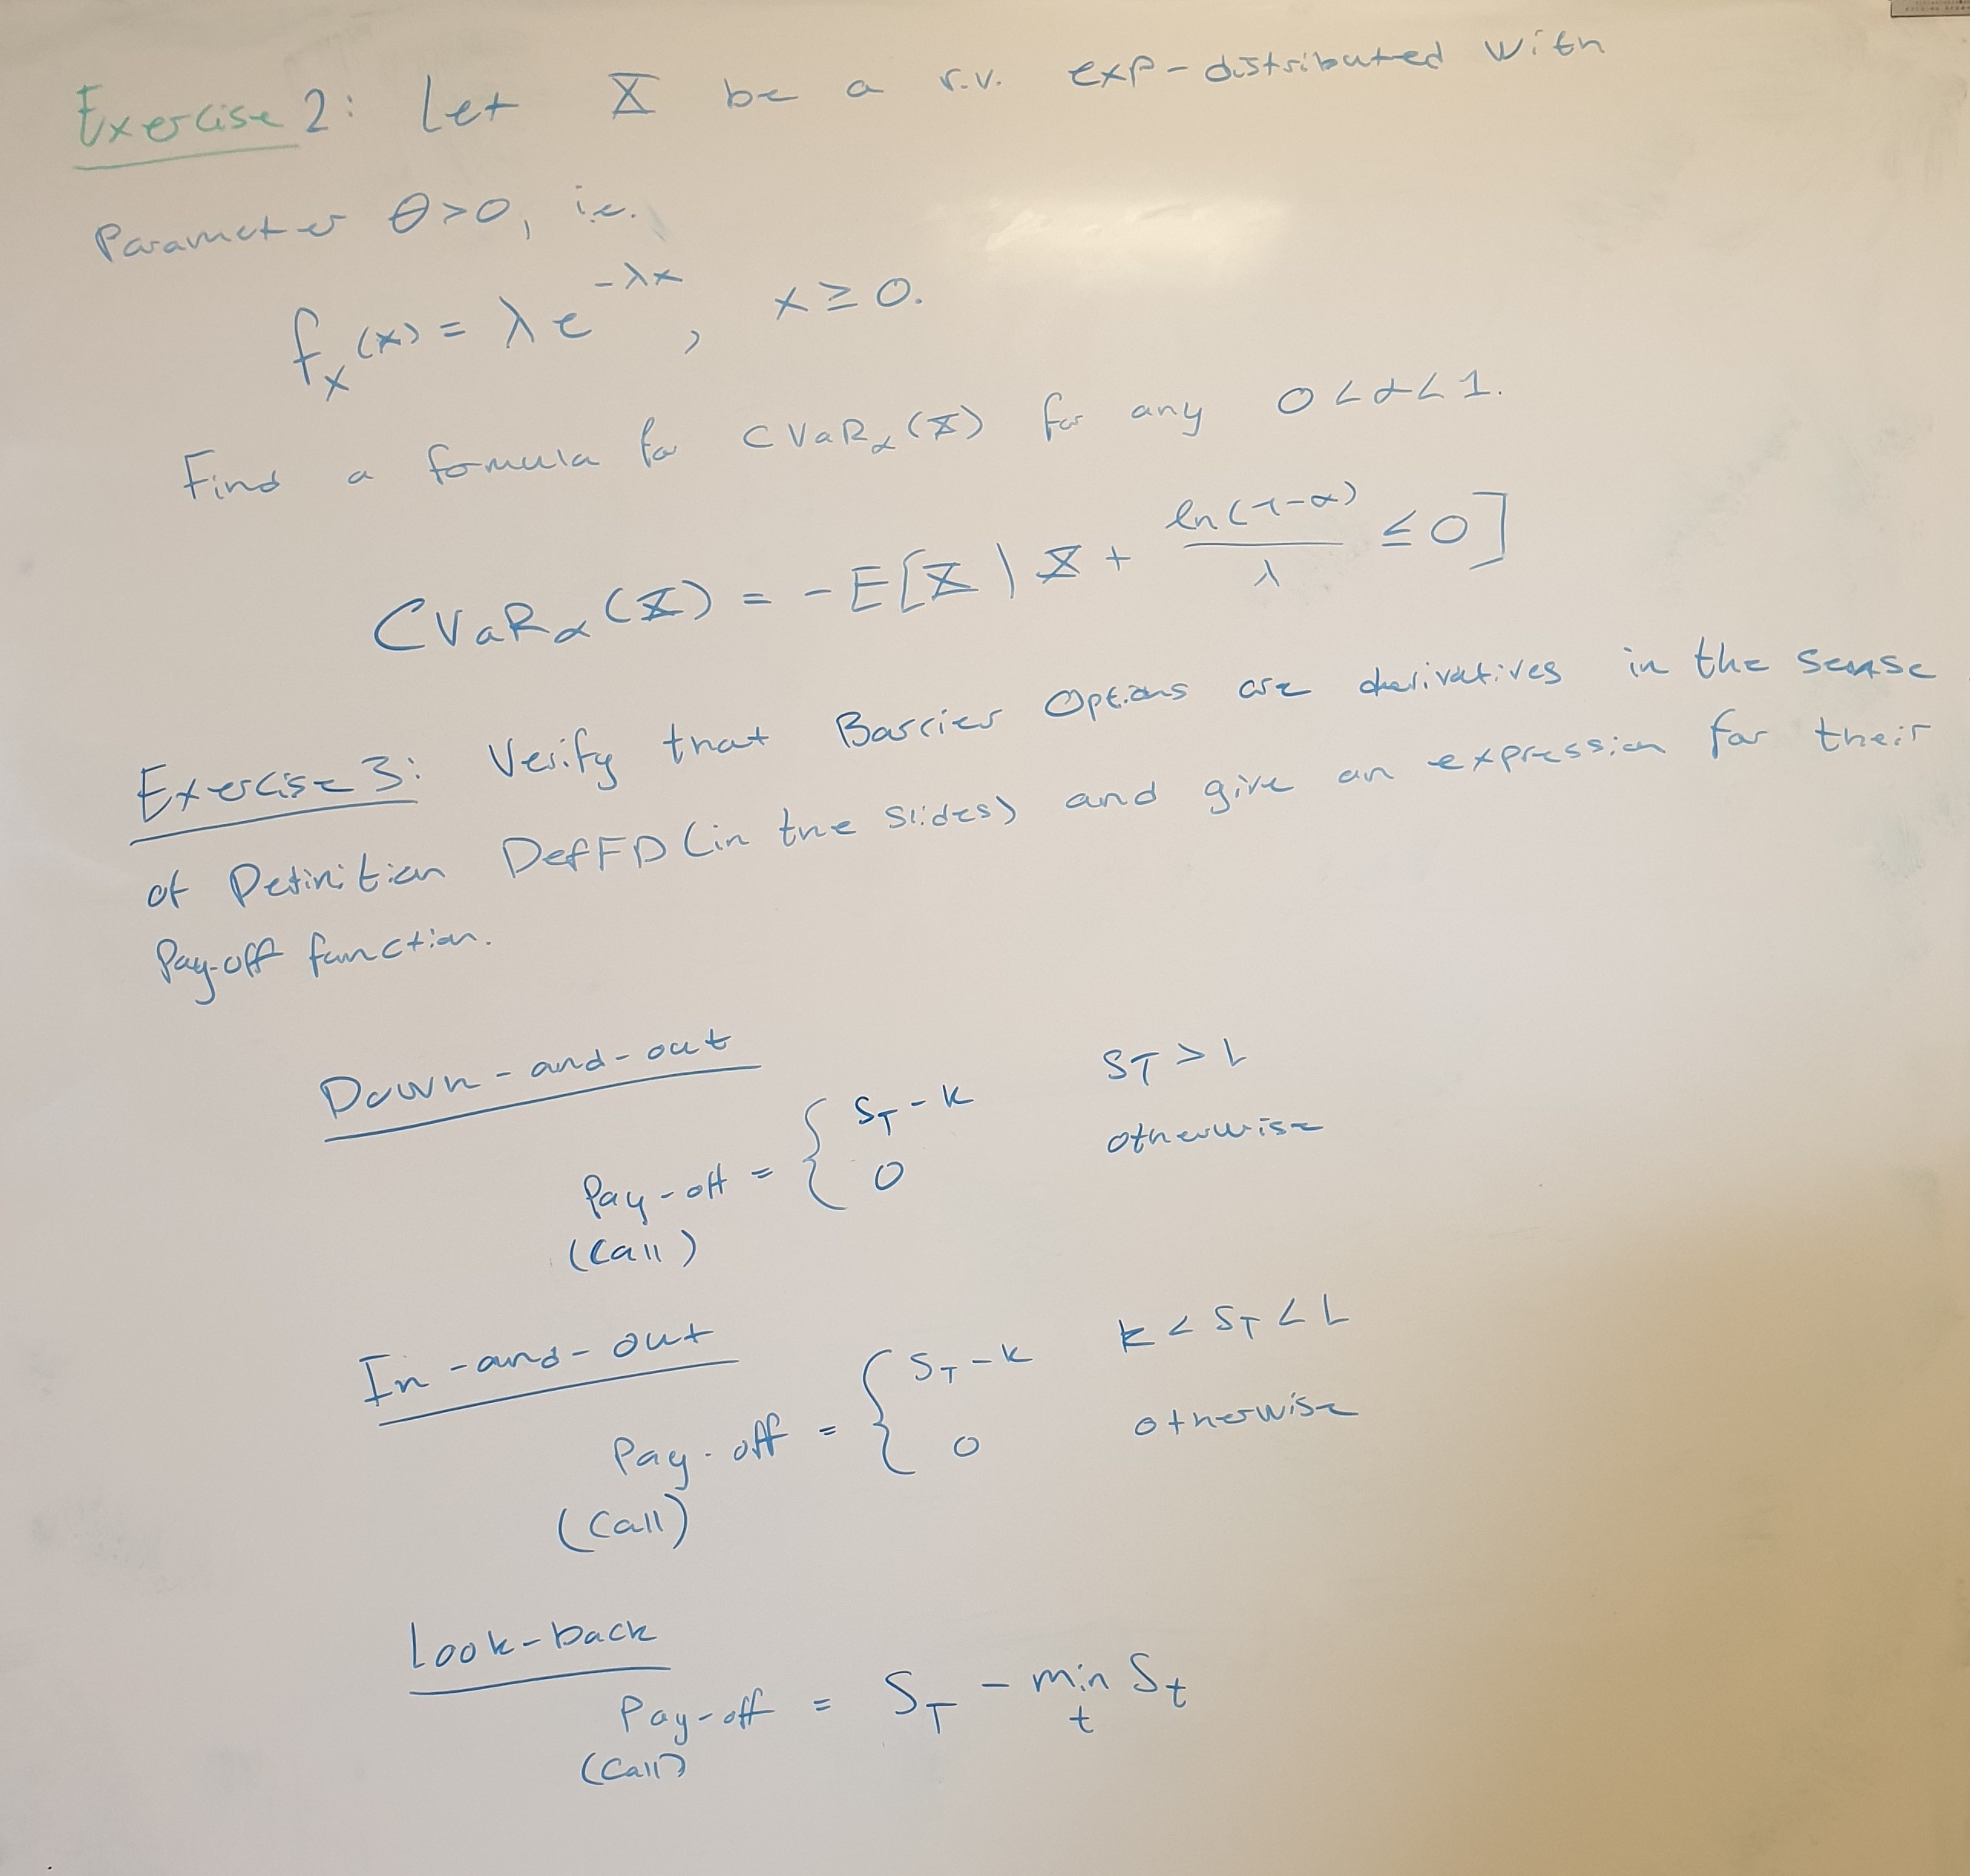 Exercise 2: Let X be a r.v. exp-distributed with
Parameter θ>0, i.e.
f_X(x) = λe^{-λx}, x ≥ 0.
Find a formula for CVaR_α(X) for any 0<α<1.
CVaR_α(X) = -E[X | X + ln(1-α)/λ ≤ 0]
Exercise 3: Verify that Barrier Options are derivatives in the sense
of Definition DefFD (in the slides) and give an expression for their
Pay-off function.
Down-and-out
Pay-off = { S_T - K   S_T > L
(Call)   0   otherwise
In-and-out
Pay-off = { S_T - K   K < S_T < L
(Call)   0   otherwise
Look-back
Pay-off = S_T - min_t S_t
(Call)